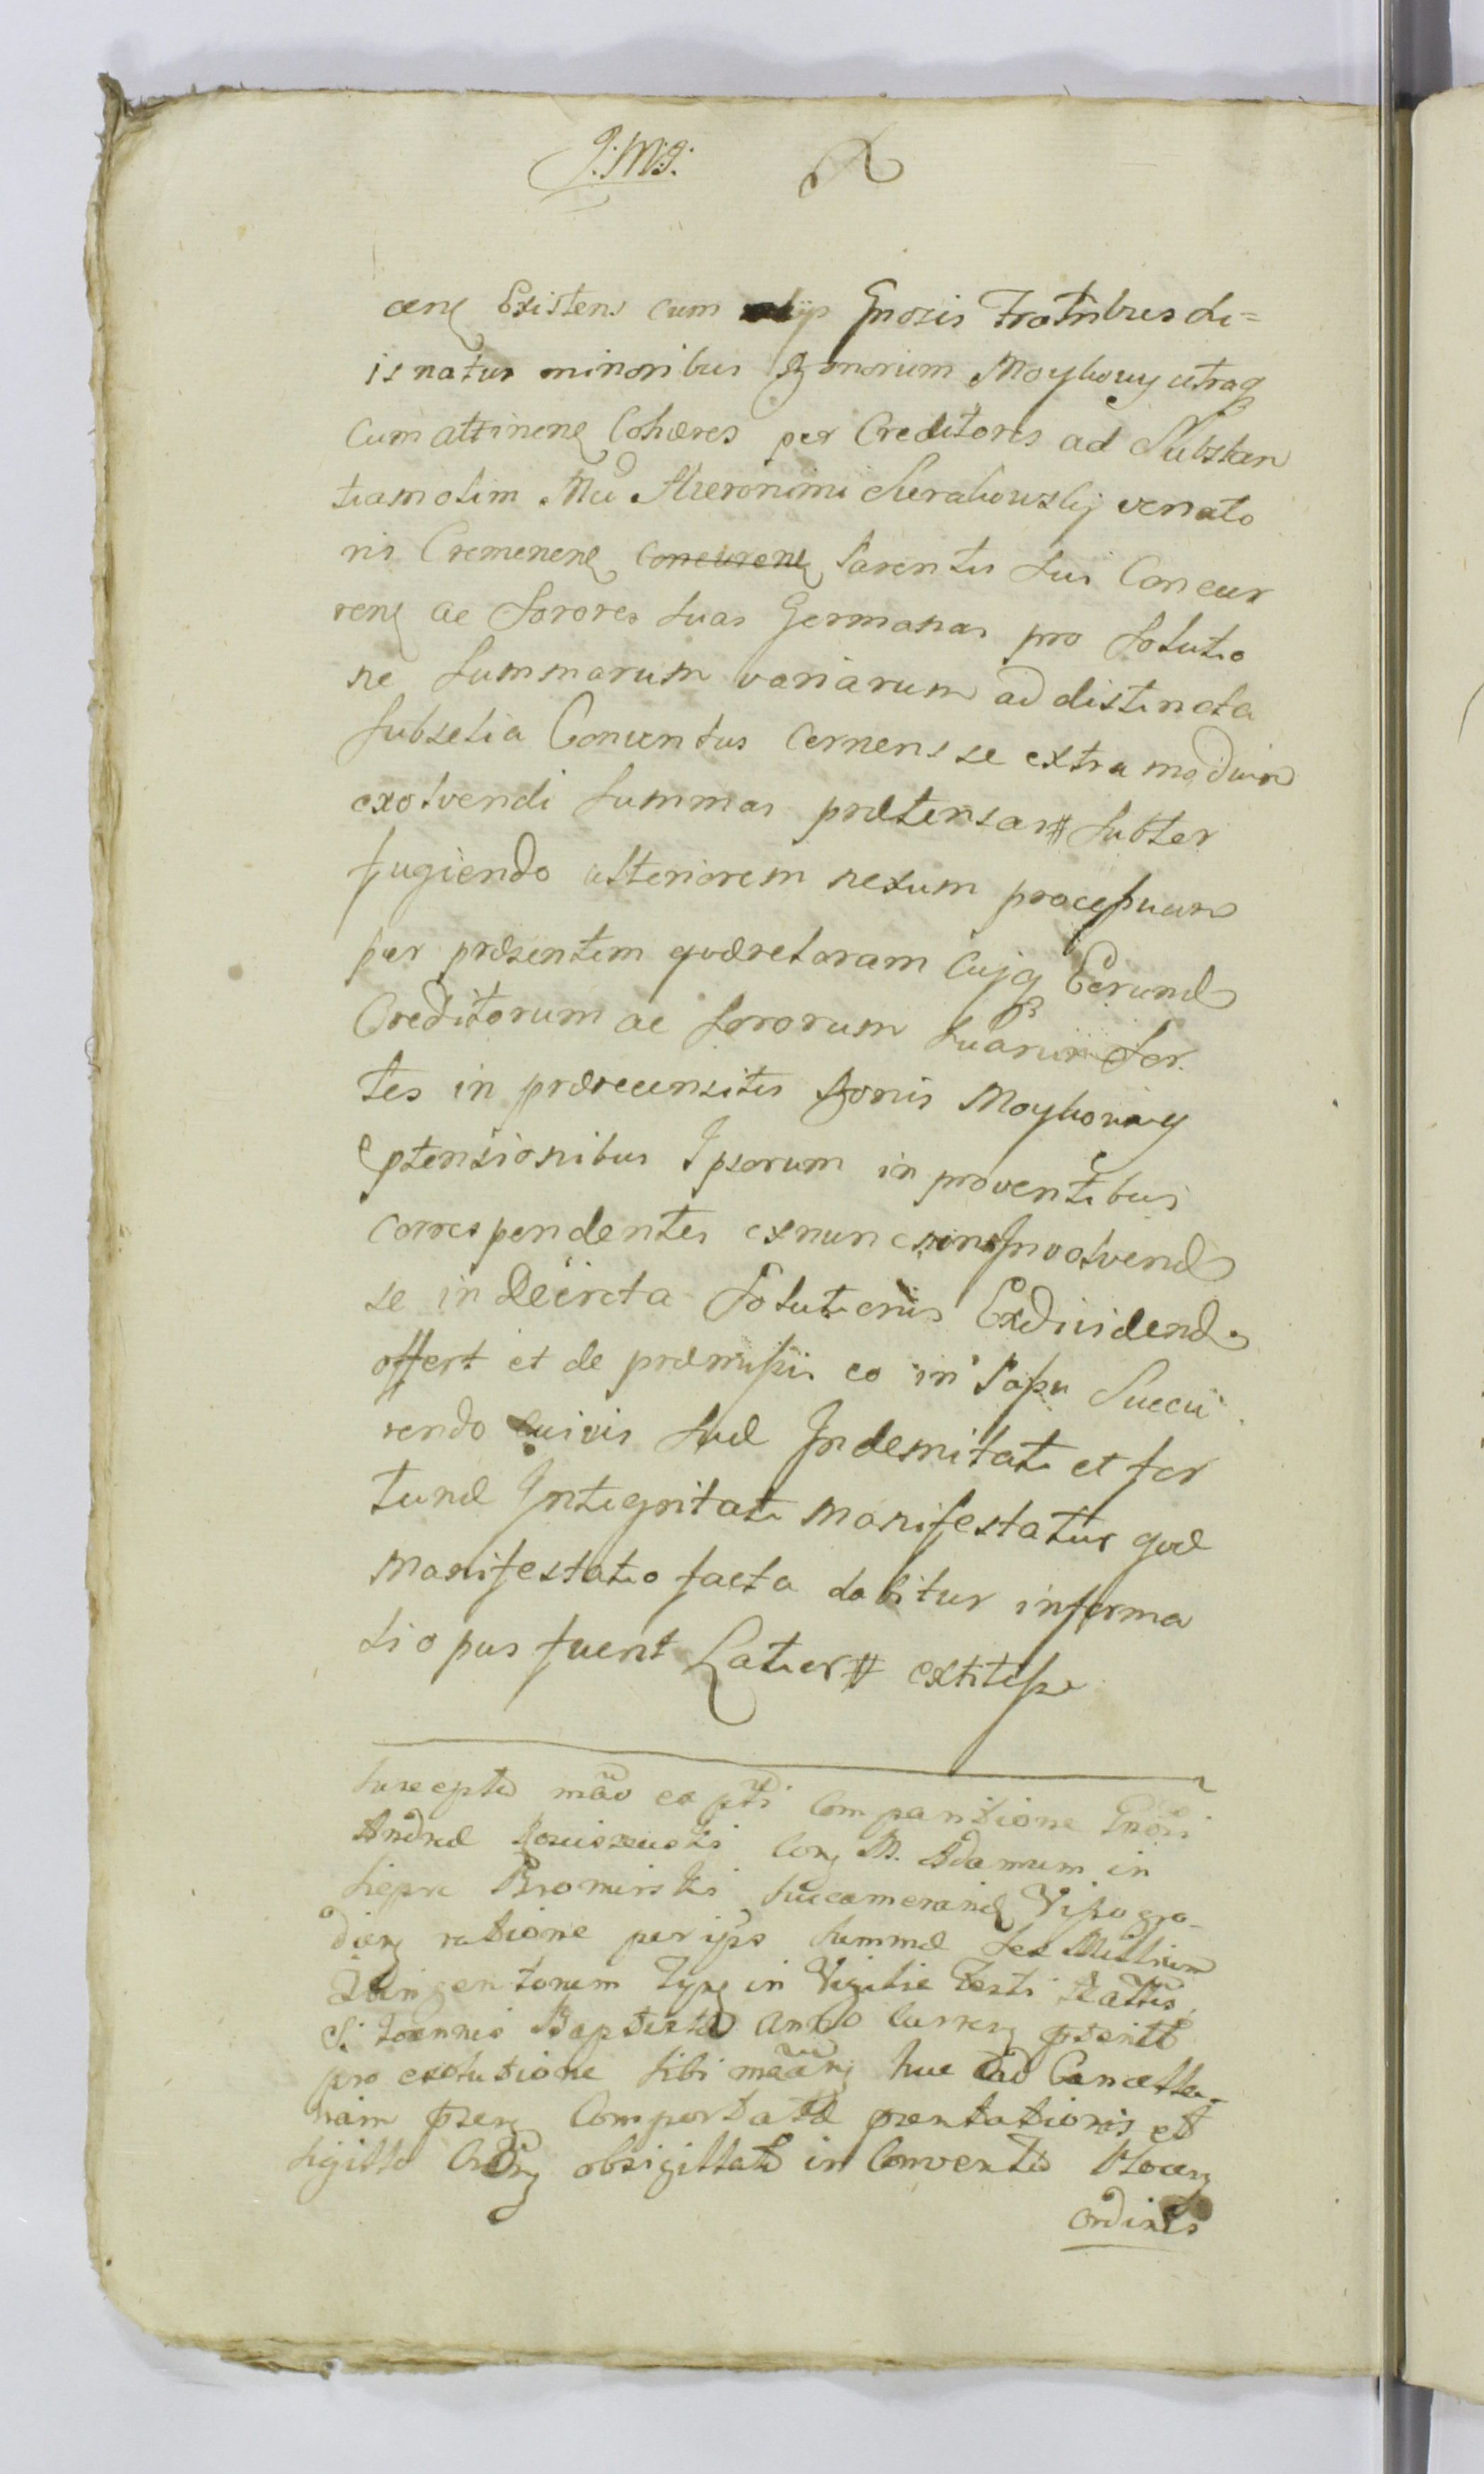 J: M: J:
Existens cum Gnosis Fratribus su=
is natus minoribus Bonorum Moykowy utraq
cum attinen Cohæres per Creditores ad Substan
tiam olim Hieronimi Sierakowskij venato
ris Cremenen concurren Parentis sui Concur
ren ac Sorores suas Germanas pro Solutio
ne summarum variarum ad distincta
subselia Conventus cernens se extra modum
exolvendi summas prætensas subter
fugiendo ulteriorem nexum processuum
per præsentem quæ cujq Eorund
Creditorum ac Sororum suarum Sor
tes in prærecensitis Bonis Moykowy
ptensionibus Ipsorum in proventibus
correspondentes exnunc Involvend
se in Decreta Solutionis Exdividend
offert et de præmissis eo in Passu Succu
rendo suæ Indemnitati et for
tunæ Integritati manifestatur quæ
manifestatio facta dabitur in forma
si opus fuerit Latior extitisse
Suscepta ex Comparitione Gnosi
Andreæ M. Adamum in
Bromirski Succamerarid Vissogro
dien ratione per ips summæ sex Millium
Quingentorum Typ in Vigilie Festi
S: Joannis Baptistæ anno curren
pro exolutione sibi huc ad Cancella-
riam Comportatæ et
sigillo obsigillatæ in Conventu Plocen
ordinis